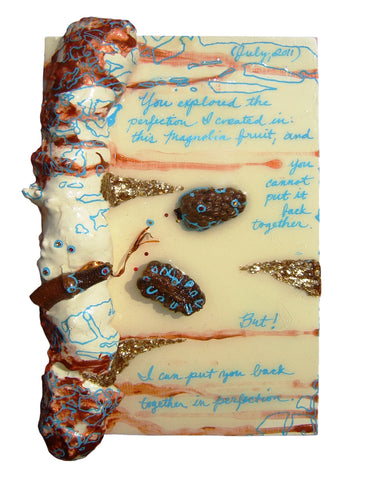 (July, 2011)
You explored the
perfection I created in:
this Magnolia fruit, and
you
cannot
put it
back
together.
But!
I can put you back
together in perfection.